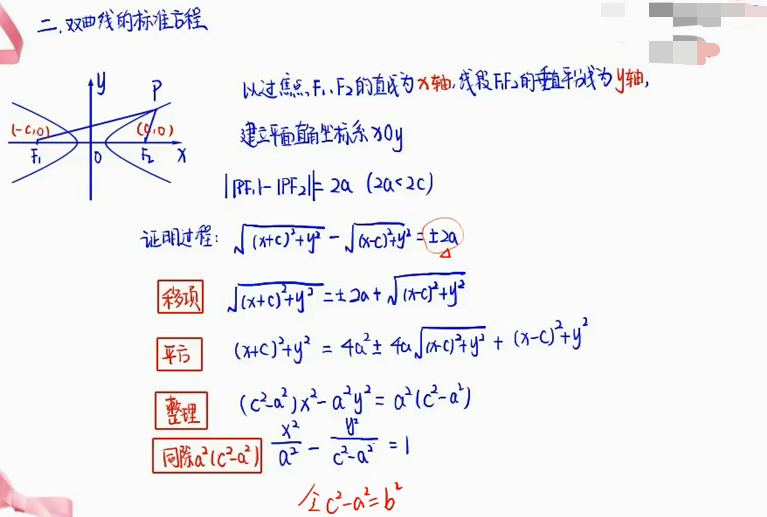 二.双曲线的标准方程
y
P
(-c,0)
(c,0)
F₁ O F₂ x
以过焦点F₁、F₂的直线为x轴,线段F₁F₂的垂直平分线为y轴,
建立平面直角坐标系xOy
||PF₁|-|PF₂||=2a (2a<2c)
证明过程: √((x+c)²+y²) - √((x-c)²+y²) = ±2a
移项 √((x+c)²+y²) = ±2a + √((x-c)²+y²)
平方 (x+c)²+y² = 4a² ± 4a√((x-c)²+y²) + (x-c)²+y²
整理 (c²-a²)x²-a²y² = a²(c²-a²)
同除a²(c²-a²) x²/a² - y²/(c²-a²) = 1
令c²-a²=b²